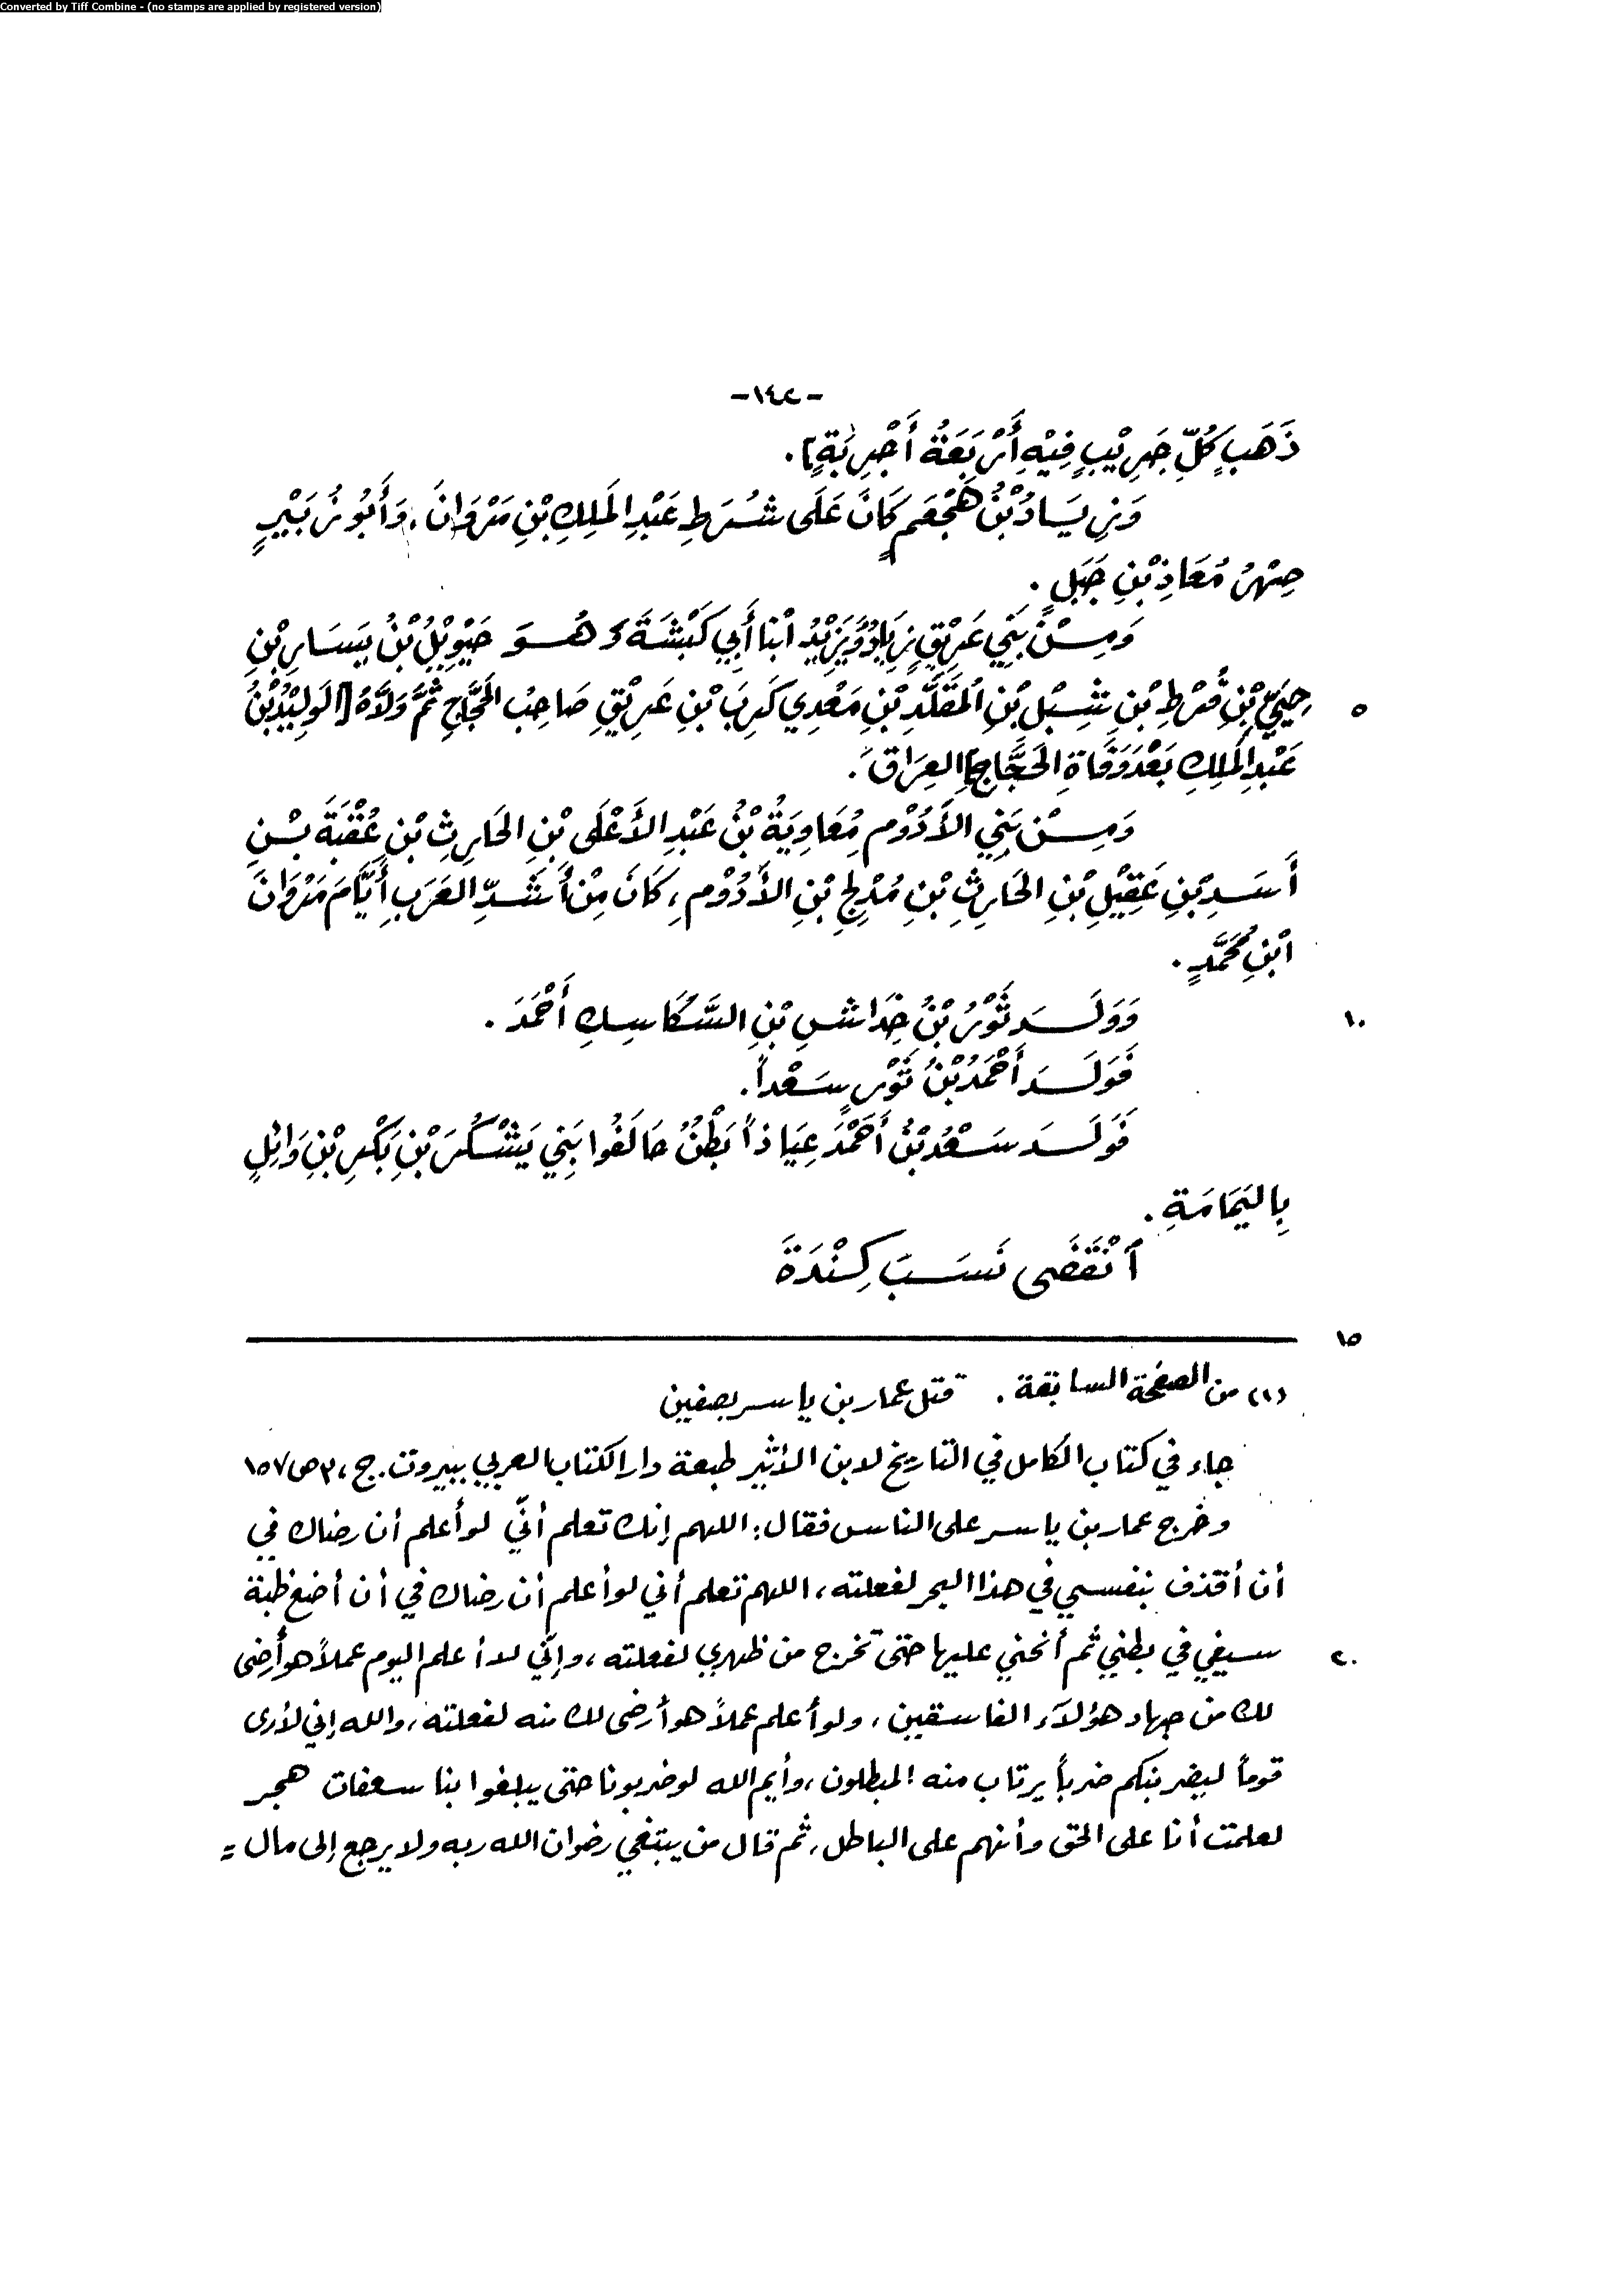 Converted by Tiff Combine - (no stamps are applied by registered version)
-١٤٢-
ذَهَبٍ كُلِّ جَرِيْبٍ فِيْهِ أَرْبَعَةُ أَجْرِبَةٍ].
وَزِيَادُ بْنُ هَجْعَمٍ كَانَ عَلَى شُرَطِ عَبْدِ المَلِكِ بْنِ مَرْوَانَ، وَأَبُو زُبَيْبٍ
صِهْرُ مُعَاذِ بْنِ جَبَلٍ.
وَمِنْ بَنِي عَرِيْقٍ زِيَادٌ وَيَزِيْدُ ابْنَا أَبِي كَبْشَةَ وَهُوَ حَيْوِيْلُ بْنُ يَسَارِ بْنِ
حِيَيِّ بْنِ قُرْطِ بْنِ شِبْلِ بْنِ المُقَلَّدِ بْنِ مَعْدِي كَرِبَ بْنِ عَرِيْقٍ صَاحِبُ الحَجَّاجِ ثُمَّ وَلَّاهُ [الوَلِيْدُ بْنُ
٥
عَبْدِ المَلِكِ بَعْدَ وَفَاةِ الحَجَّاجِ] العِرَاقَ.
وَمِنْ بَنِي الأَدْوَمِ مُعَاوِيَةُ بْنُ عَبْدِ الأَعْلَى بْنِ الحَارِثِ بْنِ عُقْبَةَ بْنِ
أَسَدِ بْنِ عَقِيْلِ بْنِ الحَارِثِ بْنِ مُدْلِجِ بْنِ الأَدْوَمِ، كَانَ مِنْ أَشَدِّ العَرَبِ أَيَّامَ مَرْوَانَ
ابْنِ مُحَمَّدٍ.
وَوَلَدَ ثَوْرُ بْنُ خِدَاشِ بْنِ السَّكَاسِكِ أَحْمَدَ.
١٠
فَوَلَدَ أَحْمَدُ بْنُ ثَوْرٍ سَعْداً.
فَوَلَدَ سَعْدُ بْنُ أَحْمَدَ عِيَاذاً بَطْنٌ حَالَفُوا بَنِي يَشْكُرَ بْنِ بَكْرِ بْنِ وَائِلٍ
بِاليَمَامَةِ.
اَنْقَضَى نَسَبَ كِنْدَةَ
١٥
(١) من الصفحة السابقة. قتل عمار بن ياسر بصفين
جاء في كتاب الكامل في التاريخ لابن الأثير طبعة دار الكتاب العربي ببيروت. ج، ٣ ص ١٥٧
وخرج عمار بن ياسر على الناس فقال: اللهم إنك تعلم أنّي لو أعلم أن رضاك في
أن أقذف بنفسي في هذا البحر لفعلته، اللهم تعلم أني لو أعلم أن رضاك في أن أضع ظبة
سيفي في بطني ثم أنحني عليها حتى تخرج من ظهري لفعلته، وإنّي لا أعلم اليوم عملاً هو أرضى
٢٠
لك من جهاد هؤلاء الفاسقين، ولو أعلم عملاً هو أرضى لك منه لفعلته، والله إني لأرى
قوماً ليضربنكم ضرباً يرتاب منه المبطلون، وأيم الله لو ضربونا حتى يبلغوا بنا سعفات هجر
لعلمت أنا على الحق وأنهم على الباطل، ثم قال من يبتغي رضوان الله ربه ولا يرجع إلى مال =